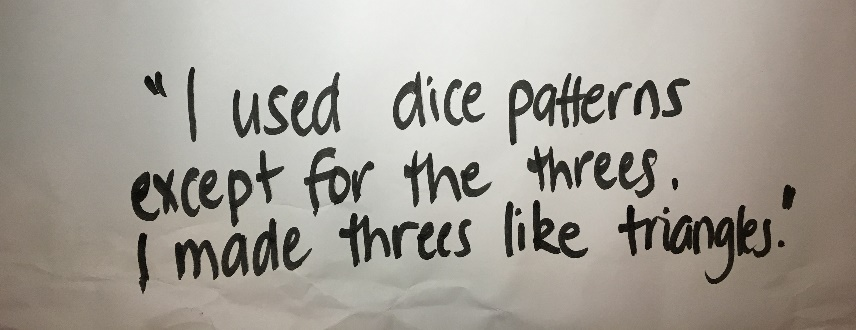 "I used dice patterns
except for the threes.
I made threes like triangles."